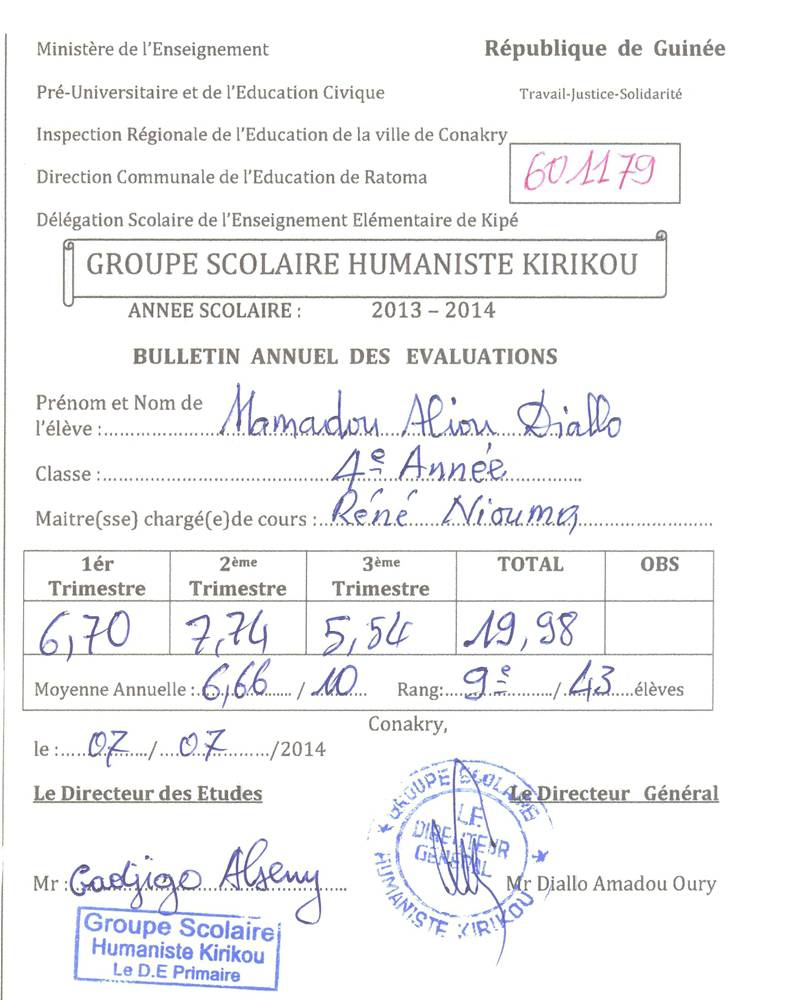 Ministère de l'Enseignement
République de Guinée
Pré-Universitaire et de l'Education Civique
Travail-Justice-Solidarité
Inspection Régionale de l'Education de la ville de Conakry
601179
Direction Communale de l'Education de Ratoma
Délégation Scolaire de l'Enseignement Elémentaire de Kipé
GROUPE SCOLAIRE HUMANISTE KIRIKOU
ANNEE SCOLAIRE : 2013 – 2014
BULLETIN ANNUEL DES EVALUATIONS
Prénom et Nom de
l'élève : Mamadou Aliou Diallo
Classe : 4e Année
Maitre(sse) chargé(e)de cours : Réné Niouma
1ér Trimestre 2ème Trimestre 3ème Trimestre TOTAL OBS
6,70 7,74 5,54 19,98
Moyenne Annuelle : 6,66 / 10 Rang: 9e / 43 élèves
Conakry,
le : 07 / 07 /2014
Le Directeur des Etudes
Le Directeur Général
GROUPE SCOLAIRE
HUMANISTE KIRIKOU
LE
DIRECTEUR
GENERAL
Mr : Gadjigo Alseny
Mr Diallo Amadou Oury
Groupe Scolaire
Humaniste Kirikou
Le D.E Primaire